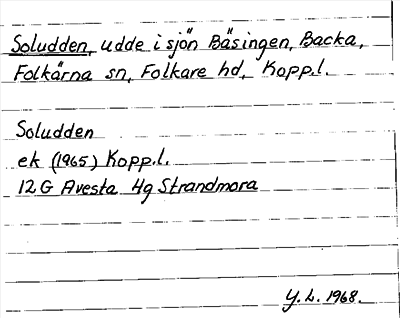 Soludden, udde i sjön Bäsingen, Backa,
Folkärna sn, Folkare hd, Kopp.l.
Soludden
ek (1965) Kopp.l.
12G Avesta 4g Strandmora
Y.L. 1968.